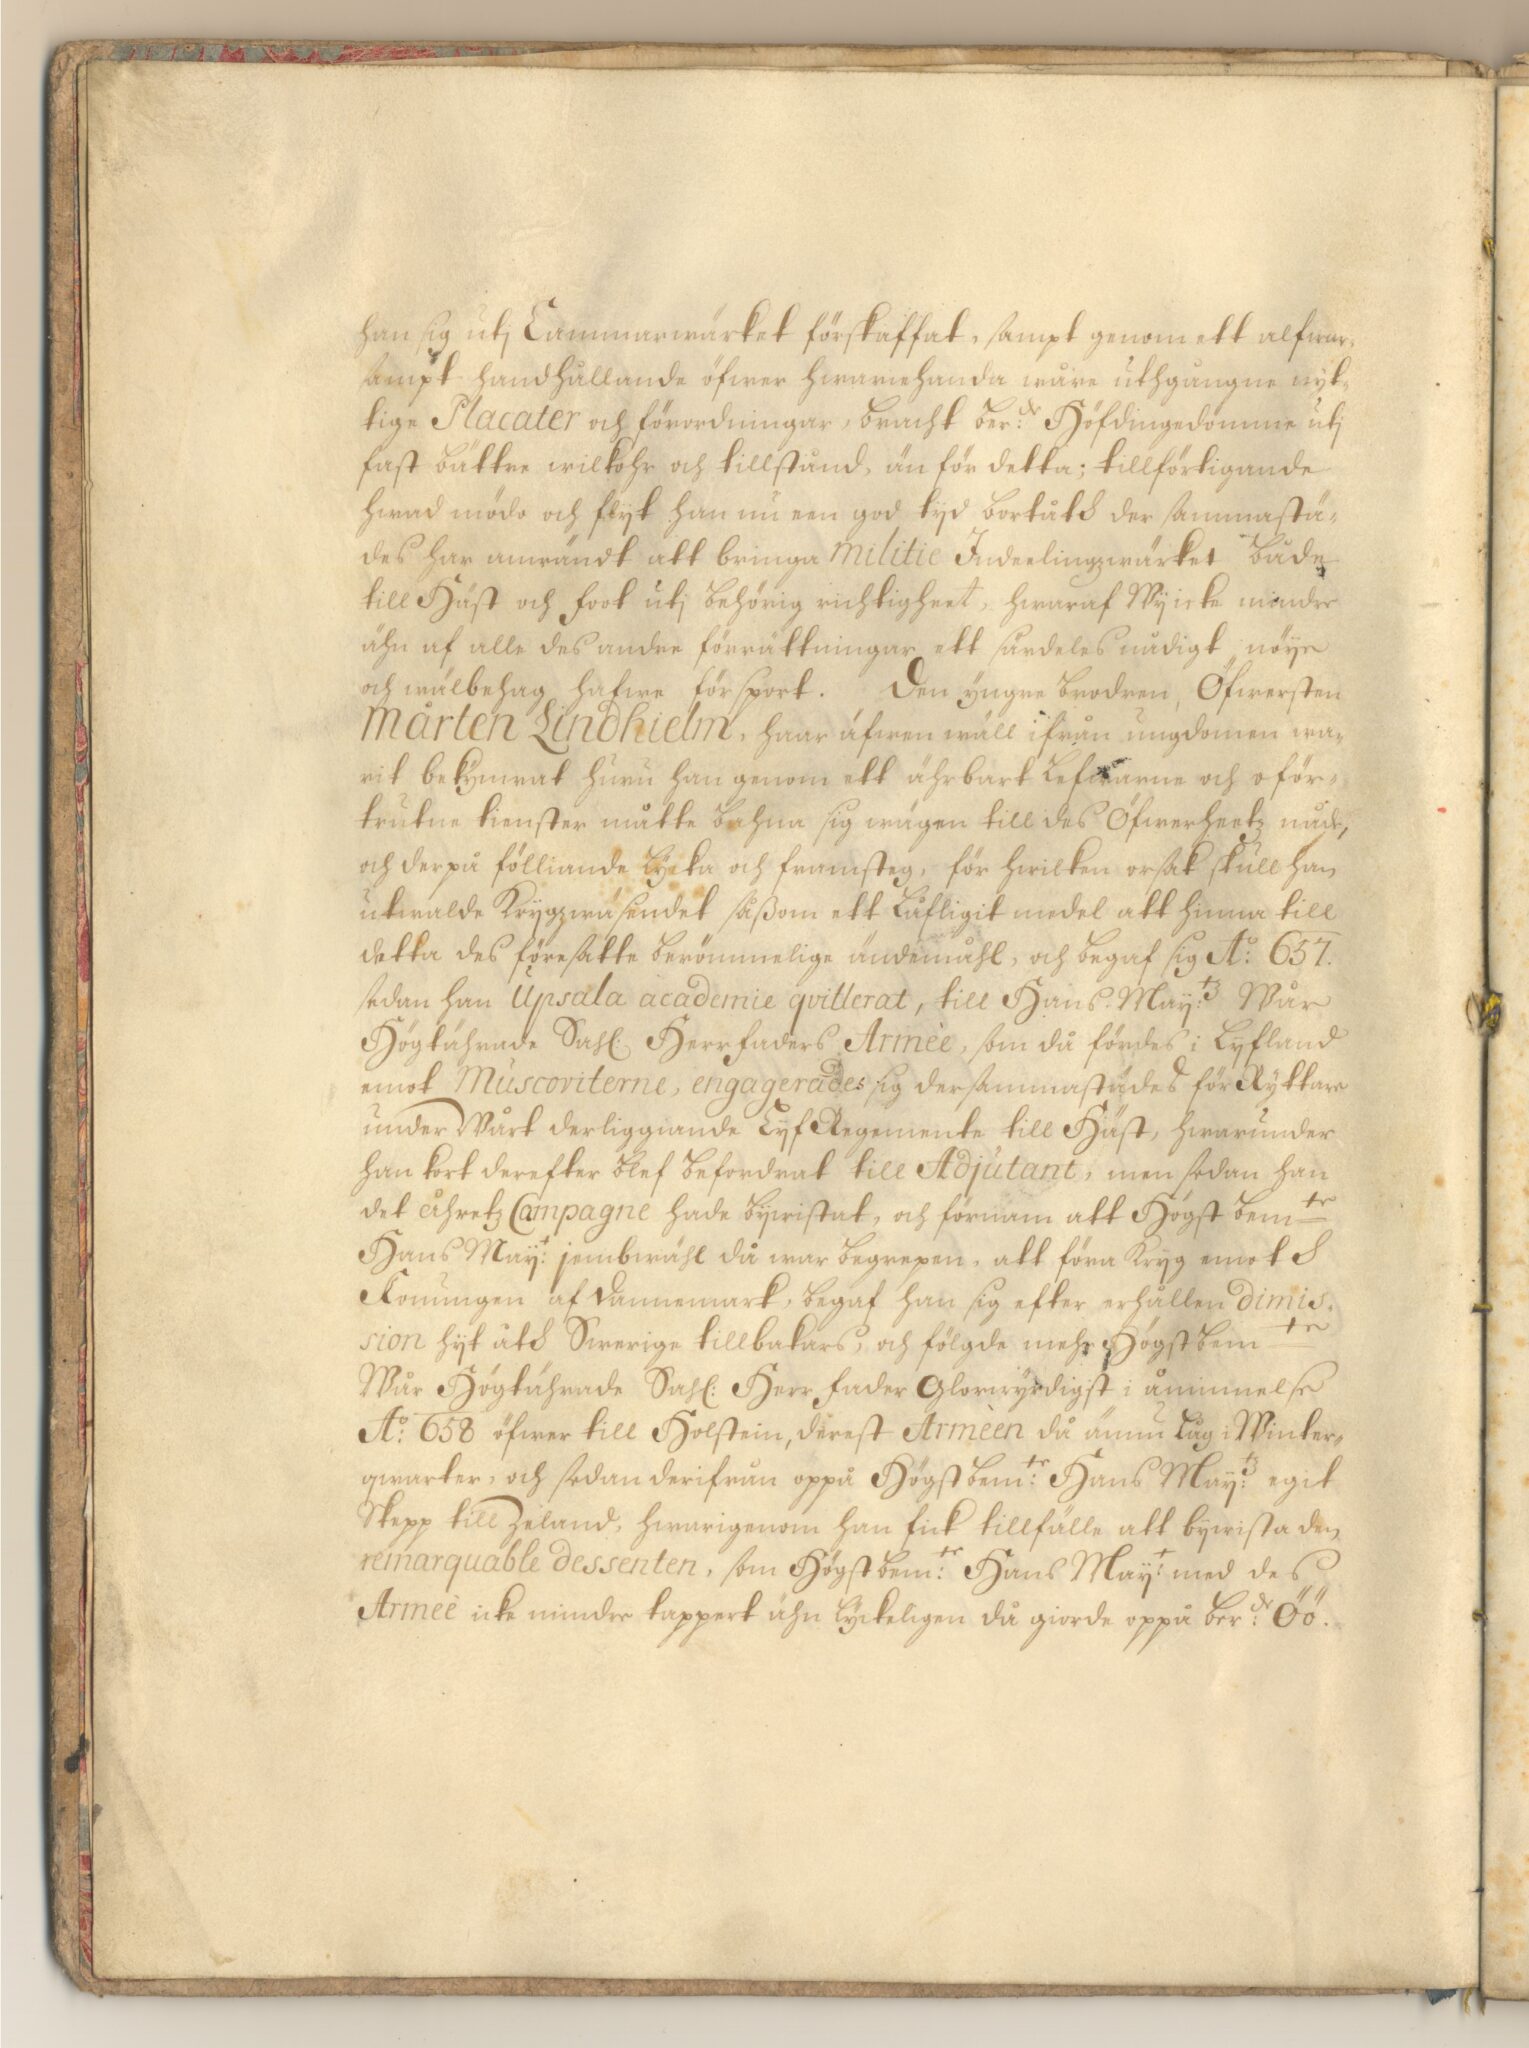 han sig utj Cammarwärket förskaffat, sampt genom ett alfwar-
sampt handhållande öfwer hwariehanda wåre uthgångne nyt-
tige Placater och förordningar, bracht ber:de Höfdingedömme utj
fast bättre wilkohr och tillstånd, än för detta; tillförtigande
hwad mödo och flyt han nu een god tyd bortåth der sammastä-
des har anwändt att bringa Militie Indeelingzwärket både
till Häst och foot utj behörig richtigheet, hwaraf Wij icke mindre
ähn af alle des andre förrättningar ett särdeles nådigt nöye
och wälbehag hafwe försport. Den yngre brodren, Öfwersten
Mårten Lindhielm, haar äfwen wäll ifrån ungdomen wa-
rit bekymrat huru han genom ett ährbart lefwarne och oför-
trutne tienster måtte bahna sig wägen till des Öfwerheetz nåde,
och derpå fölliande lycka och framsteg, för hwilken orsak skull han
utwalde Krygzwäsendet såßom ett låfligit medel att hinna till
detta des föresatte berömmelige ändemåhl, och begaf sig A:o 657.
sedan han Upsala academie qvitterat, till Hans May:tz Wår
Högtährade Sahl: Herr faders Armée, som då fördes i Lyfland
emot Muscoviterne, engagerades sig dersammastädes för Ryttare
under Wårt derliggiande Lyf Regemente till Häst, hwarunder
han kort derefter blef befordrat till Adjutant, men sedan han
det åhretz Campagne hade bywistat, och förnam att Högst bem:te
Hans May:t jembwähl då war begrepen, att föra Kryg emoth
Konungen af Dannemark, begaf han sig efter erhållen dimis-
sion hyt åth Swerige tillbakars, och fölgde mehr Högstbem:te
Wår Högtährade Sahl: Herr fader Glorwyrdigst i åminnelse
A:o 658 öfwer till Holstein, derest Arméen då ännu låg i Winter-
qwarter, och sedan derifrån oppå Högstbem:te Hans May:tz egit
Skepp till Zeland, hwarigenom han fick tillfälle att bywista den
remarquable dessenten, som Högstbem:te Hans May:t med des
Armeé icke mindre tappert ähn lyckeligen då giorde oppå ber:de Öö.